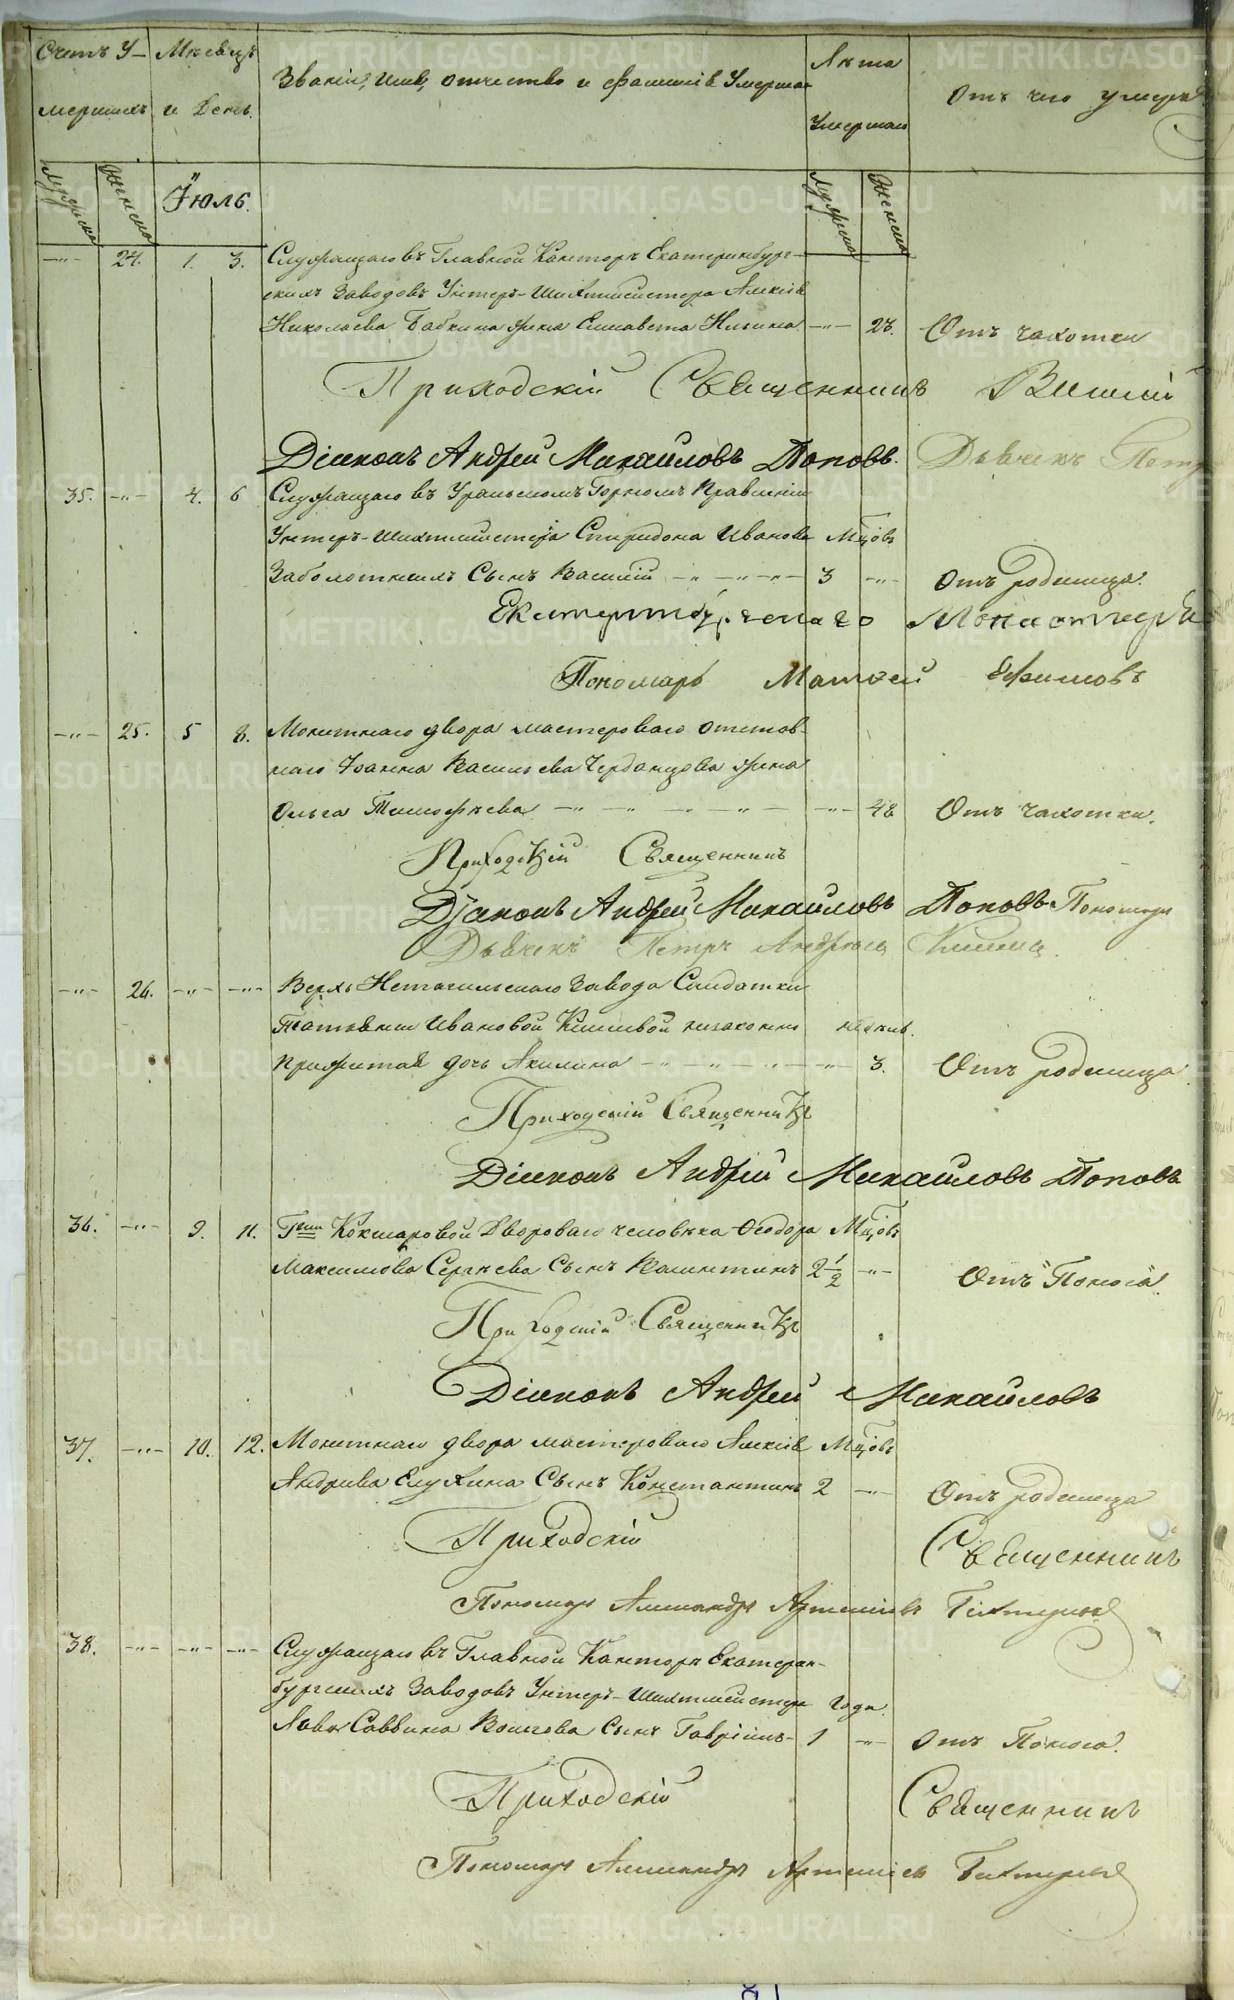 Счетъ У- Мѣсяцъ Званіе, имя, отчество и фамилія Умерша- Лѣта Отъ чего умеръ
мершихъ и День. Умершаго
Мужеска Женска Іюль. Мужеска Женска
-"- 24. 1. 3. Служащаго въ Главной Конторѣ Екатеринбург-
скихъ Заводовъ Унтеръ-Шихтмейстера Алексѣя
Николаева Бабкина жена Елисавета -"- 23. Отъ чахотки
Приходскій Священникъ
Діаконъ Андрей Михайловъ Поповъ. Дьячекъ Петръ
35. -"- 4. 6 Служащаго въ Уральскомъ Горномъ Правленіи
Унтеръ-шихтмейстера Спиридона Иванова Мцовъ
Заболотнихъ Сынъ Василій -"- -"- 3 -"- Отъ родимца.
Екатеринбургскаго Монастыря
Пономарь Матвей Ефимовъ
-"- 25. 5 8. Монетнаго двора мастероваго отстав-
наго Іоанна Васильева Чердынцова жена
Ольга Тимофѣева -"- -"- -"- 48 Отъ чахотки.
Приходскій Священникъ
Діаконъ Андрей Михайловъ Поповъ Пономарь
Дьячекъ Петръ Андреевъ
-"- 26. -"- -"- Верхъ Нетагильскаго Завода Салдатки
Татьяны Ивановой незаконно недѣль.
прижитая дочь Акилина -"- -"- -"- 3. Отъ родимца
Приходскій Священникъ
Діаконъ Андрей Михайловъ Поповъ
36. -"- 9. 11. Гжи Кокшаровой Двороваго человѣка Ѳеодора Мцовъ
Максимова Сергѣева Сынъ Валентинъ 2 1/2 -"- Отъ Поноса.
Приходскій Священникъ
Діаконъ Андрей Михайловъ
37. -"- 10. 12. Монетнаго двора мастероваго Алексѣя Мцовъ
Андреева Елухина Сынъ Константинъ 2 -"- Отъ родимца
Приходскій Священникъ
Пономарь Александръ Артемьевъ
38. -"- -"- -"- Служащаго въ Главной Конторѣ Екатерин-
бургскихъ Заводовъ Унтеръ-шихтмейстера Года.
Саввина сынъ Гавріилъ- 1 -"- Отъ Поноса.
Приходскій Священникъ
Пономарь Александръ Артемьевъ
METRIKI.GASO-URAL.RU